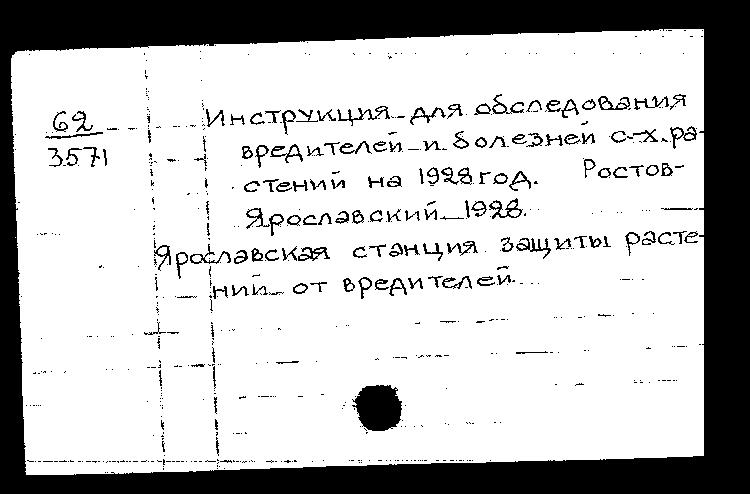 62
3571
Инструкция для обследования
вредителей и болезней с-х. ра-
стений на 1928 год. Ростов-
Ярославский 1928.
Ярославская станция защиты расте-
ний от вредителей